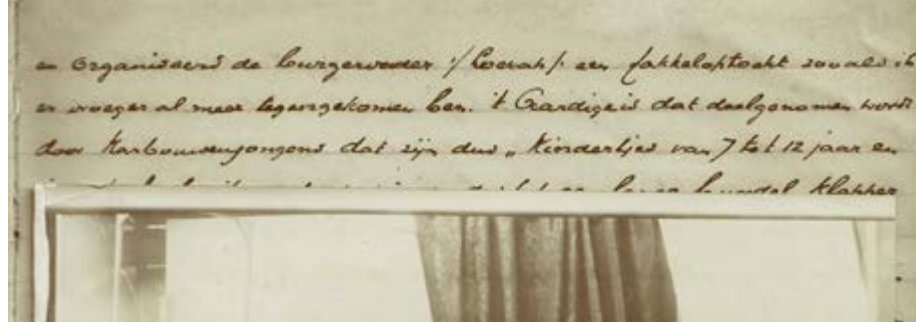 en organiseerd de burgervader /:Loerah/: een fakkeloptocht zooals ik
er vroeger al meer tegengekomen ben. 't Aardige is dat deelgenomen wordt
door Karbouwenjongens dat zijn dus „ Kindertjes van 7 tot 12 jaar en
een lange bundel klapper